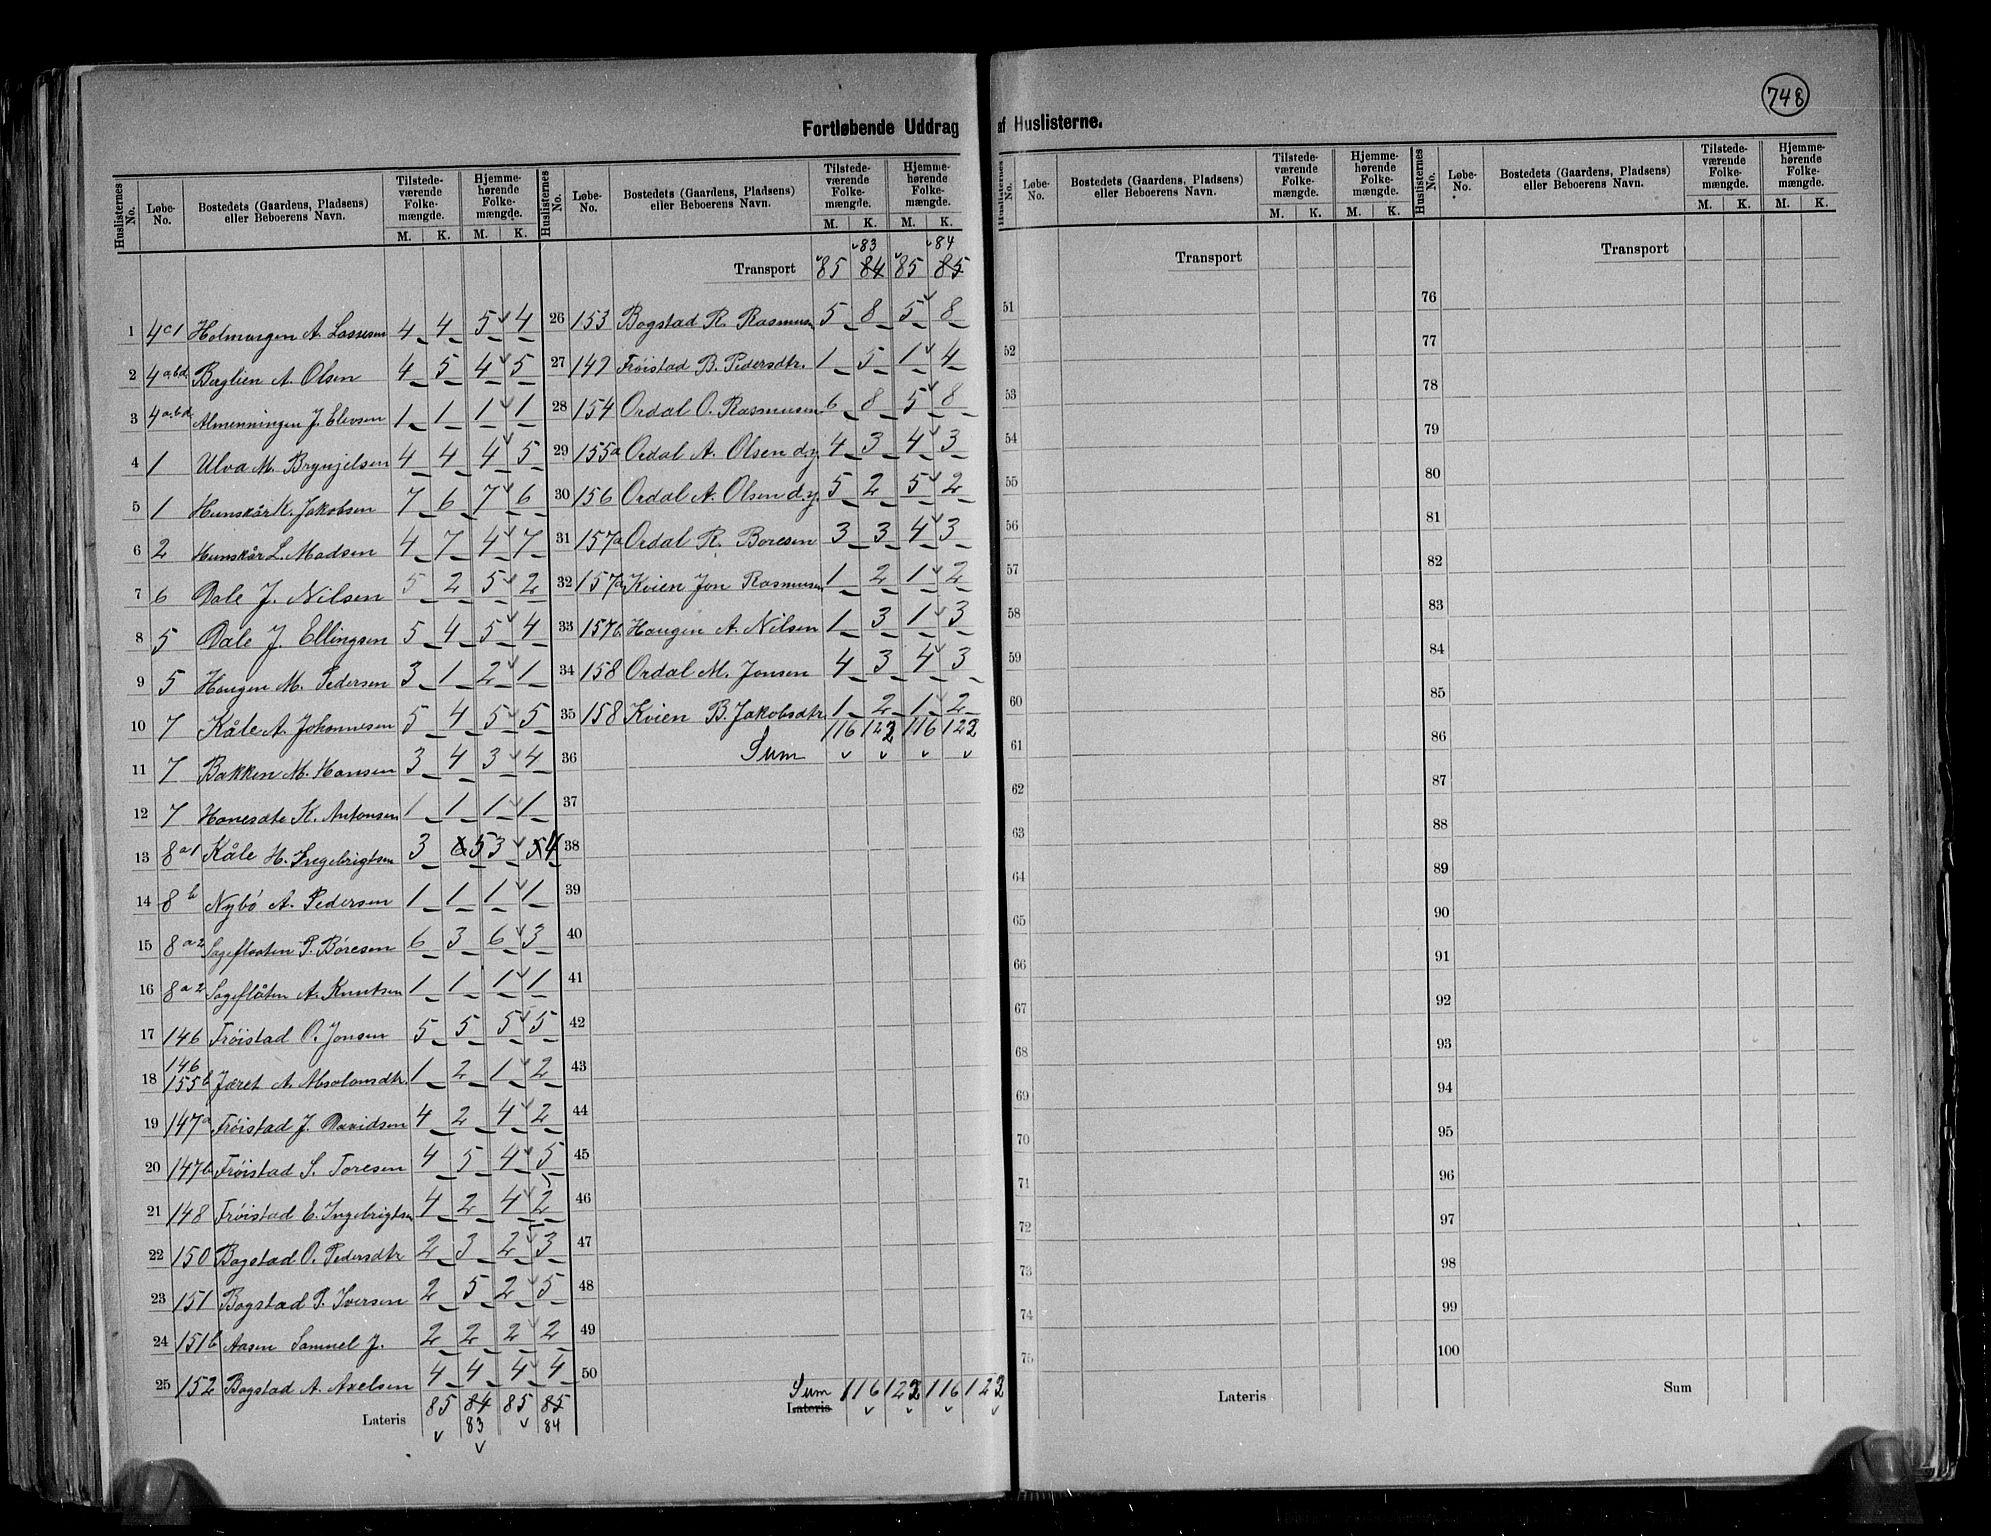 748
Fortløbende Uddrag af Huslisterne.
Huslisternes No. Løbe-No. Bostedets (Gaardens, Pladsens) eller Beboerens Navn. Tilstedeværende Folkemængde. M. K. Hjemmehørende Folkemængde. M. K.
1 4c1 Holmargen A. Lassesen 4 4 5 4
2 4a,b,d Berglien A. Olsen 4 5 4 5
3 4a,b,d Almenningen J. Elevsen 1 1 1 1
4 1 Ulva M. Brynjelsen 4 4 4 5
5 1 Hunskår K. Jakobsen 7 6 7 6
6 2 Hunskår L. Madsen 4 7 4 7
7 6 Dale J. Nilsen 5 2 5 2
8 5 Dale J. Ellingsen 5 4 5 4
9 5 Haugen M. Pedersen 3 1 2 1
10 7 Kåle A. Johannesen 5 4 5 5
11 7 Bakken M. Hansen 3 4 3 4
12 7 Hanesæte K. Antonsen 1 1 1 1
13 8a1 Kåle H. Ingebrigtsen 3 6 5 3 5 4
14 8b Nybø A. Pedersen 1 1 1 1
15 8a2 Sageflaaten P. Børesen 6 3 6 3
16 8a2 Sageflåten A. Knutsen 1 1 1 1
17 146 Frøistad O. Jonsen 5 5 5 5
18 146 155b Jæret A. Absolomsdtr. 1 2 1 2
19 147a Frøistad J. Davidsen 4 2 4 2
20 147b Frøistad S. Toresen 4 5 4 5
21 148 Frøistad E. Ingebrigtsn 4 2 4 2
22 150 Bogstad O. Pedersdtr 2 3 2 3
23 151 Bogstad P. Iversen 2 5 2 5
24 151b Aasen Samuel J. 2 2 2 2
25 152 Bogstad A. Axelsen 4 4 4 4
Lateris 85 84 85 85
83 84
Huslisternes No. Løbe-No. Bostedets (Gaardens, Pladsens) eller Beboerens Navn. Tilstedeværende Folkemængde. M. K. Hjemmehørende Folkemængde. M. K.
83 84
Transport 85 84 85 85
26 153 Bogstad R. Rasmusn 5 8 5 8
27 149 Frøistad B. Pedersdtr. 1 5 1 4
28 154 Ordal O. Rasmusen 6 8 5 8
29 155a Ordal A. Olsen d.y. 4 3 4 3
30 156 Ordal A. Olsen d.y. 5 2 5 2
31 157a Ordal R. Boresen 3 3 4 3
32 157a Kvien Jon Rasmusen 1 2 1 2
33 157b Haugen A. Nilsen 1 3 1 3
34 158 Ordal M. Jonsen 4 3 4 3
35 158 Kvien B. Jakobsdtr 1 2 1 2
116 122 116 122
36 Sum
37
38
39
40
41
42
43
44
45
46
47
48
49
50
Sum 116 122 116 122
Lateris
Huslisternes No. Løbe-No. Bostedets (Gaardens, Pladsens) eller Beboerens Navn. Tilstedeværende Folkemængde. M. K. Hjemmehørende Folkemængde. M. K.
Transport
51
52
53
54
55
56
57
58
59
60
61
62
63
64
65
66
67
68
69
70
71
72
73
74
75
Lateris
Huslisternes No. Løbe-No. Bostedets (Gaardens, Pladsens) eller Beboerens Navn. Tilstedeværende Folkemængde. M. K. Hjemmehørende Folkemængde. M. K.
Transport
76
77
78
79
80
81
82
83
84
85
86
87
88
89
90
91
92
93
94
95
96
97
98
99
100
Sum